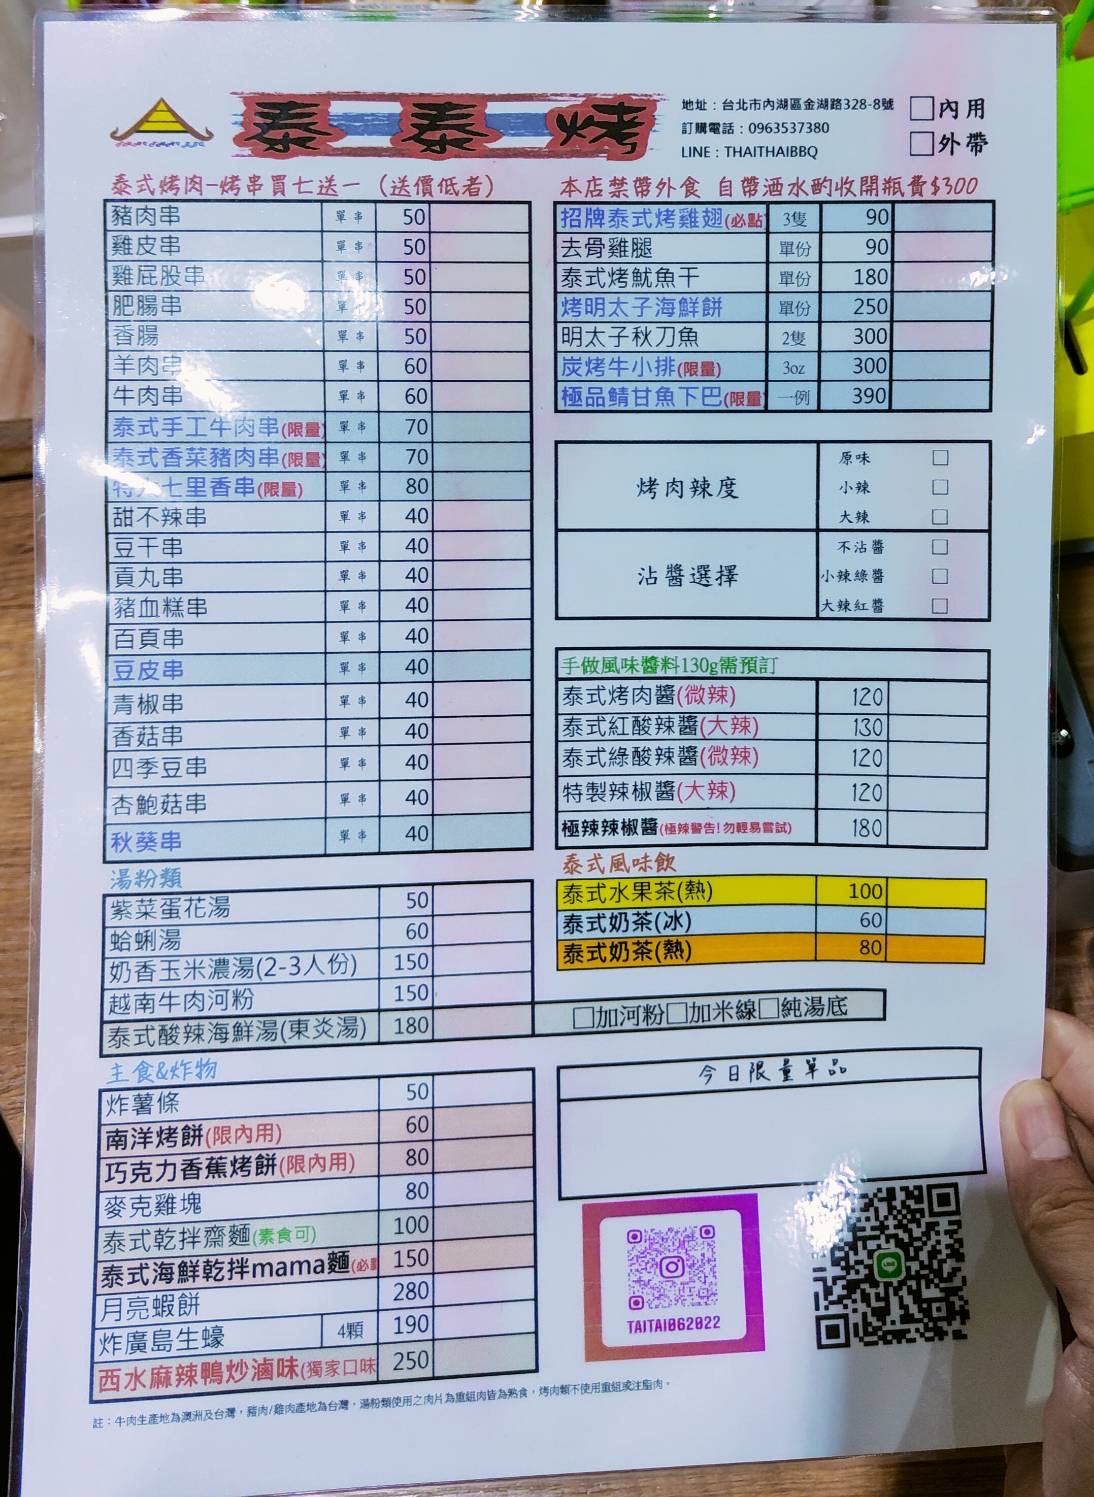 泰泰烤
地址：台北市內湖區金湖路328-8號
訂購電話：0963537380
LINE：THAITHAIBBQ
□內用
□外帶
泰式烤肉-烤串買七送一（送價低者）
豬肉串 單串 50
雞皮串 單串 50
雞屁股串 單串 50
肥腸串 單 50
香腸 單串 50
羊肉串 單串 60
牛肉串 單串 60
泰式手工牛肉串(限量) 單串 70
泰式香菜豬肉串(限量 單串 70
七里香串(限量) 單串 80
甜不辣串 單串 40
豆干串 單串 40
貢丸串 單串 40
豬血糕串 單串 40
百頁串 單串 40
豆皮串 單串 40
青椒串 單串 40
香菇串 單串 40
四季豆串 單串 40
杏鮑菇串 單串 40
秋葵串 單串 40
湯粉類
紫菜蛋花湯 50
蛤蜊湯 60
奶香玉米濃湯(2-3人份) 150
越南牛肉河粉 150
泰式酸辣海鮮湯(東炎湯) 180 □加河粉□加米線□純湯底
主食&炸物
炸薯條 50
南洋烤餅(限內用) 60
巧克力香蕉烤餅(限內用) 80
麥克雞塊 80
泰式乾拌齋麵(素食可) 100
泰式海鮮乾拌mama麵(必 150
月亮蝦餅 280
炸廣島生蠔 4顆 190
西水麻辣鴨炒滷味(獨家口味 250
本店禁帶外食 自帶酒水酌收開瓶費$300
招牌泰式烤雞翅(必點 3隻 90
去骨雞腿 單份 90
泰式烤魷魚干 單份 180
烤明太子海鮮餅 單份 250
明太子秋刀魚 2隻 300
炭烤牛小排(限量) 3oz 300
極品鯖甘魚下巴(限量 一例 390
烤肉辣度
原味 □
小辣 □
大辣 □
沾醬選擇
不沾醬 □
小辣綠醬 □
大辣紅醬 □
手做風味醬料130g需預訂
泰式烤肉醬(微辣) 120
泰式紅酸辣醬(大辣) 130
泰式綠酸辣醬(微辣) 120
特製辣椒醬(大辣) 120
極辣辣椒醬(極辣警告!勿輕易嘗試) 180
泰式風味飲
泰式水果茶(熱) 100
泰式奶茶(冰) 60
泰式奶茶(熱) 80
今日限量單品
TAITAI062022
註：牛肉生產地為澳洲及台灣，豬肉/雞肉產地為台灣，湯粉類使用之肉片為重組肉皆為熟食，烤肉類不使用重組或注脂肉。